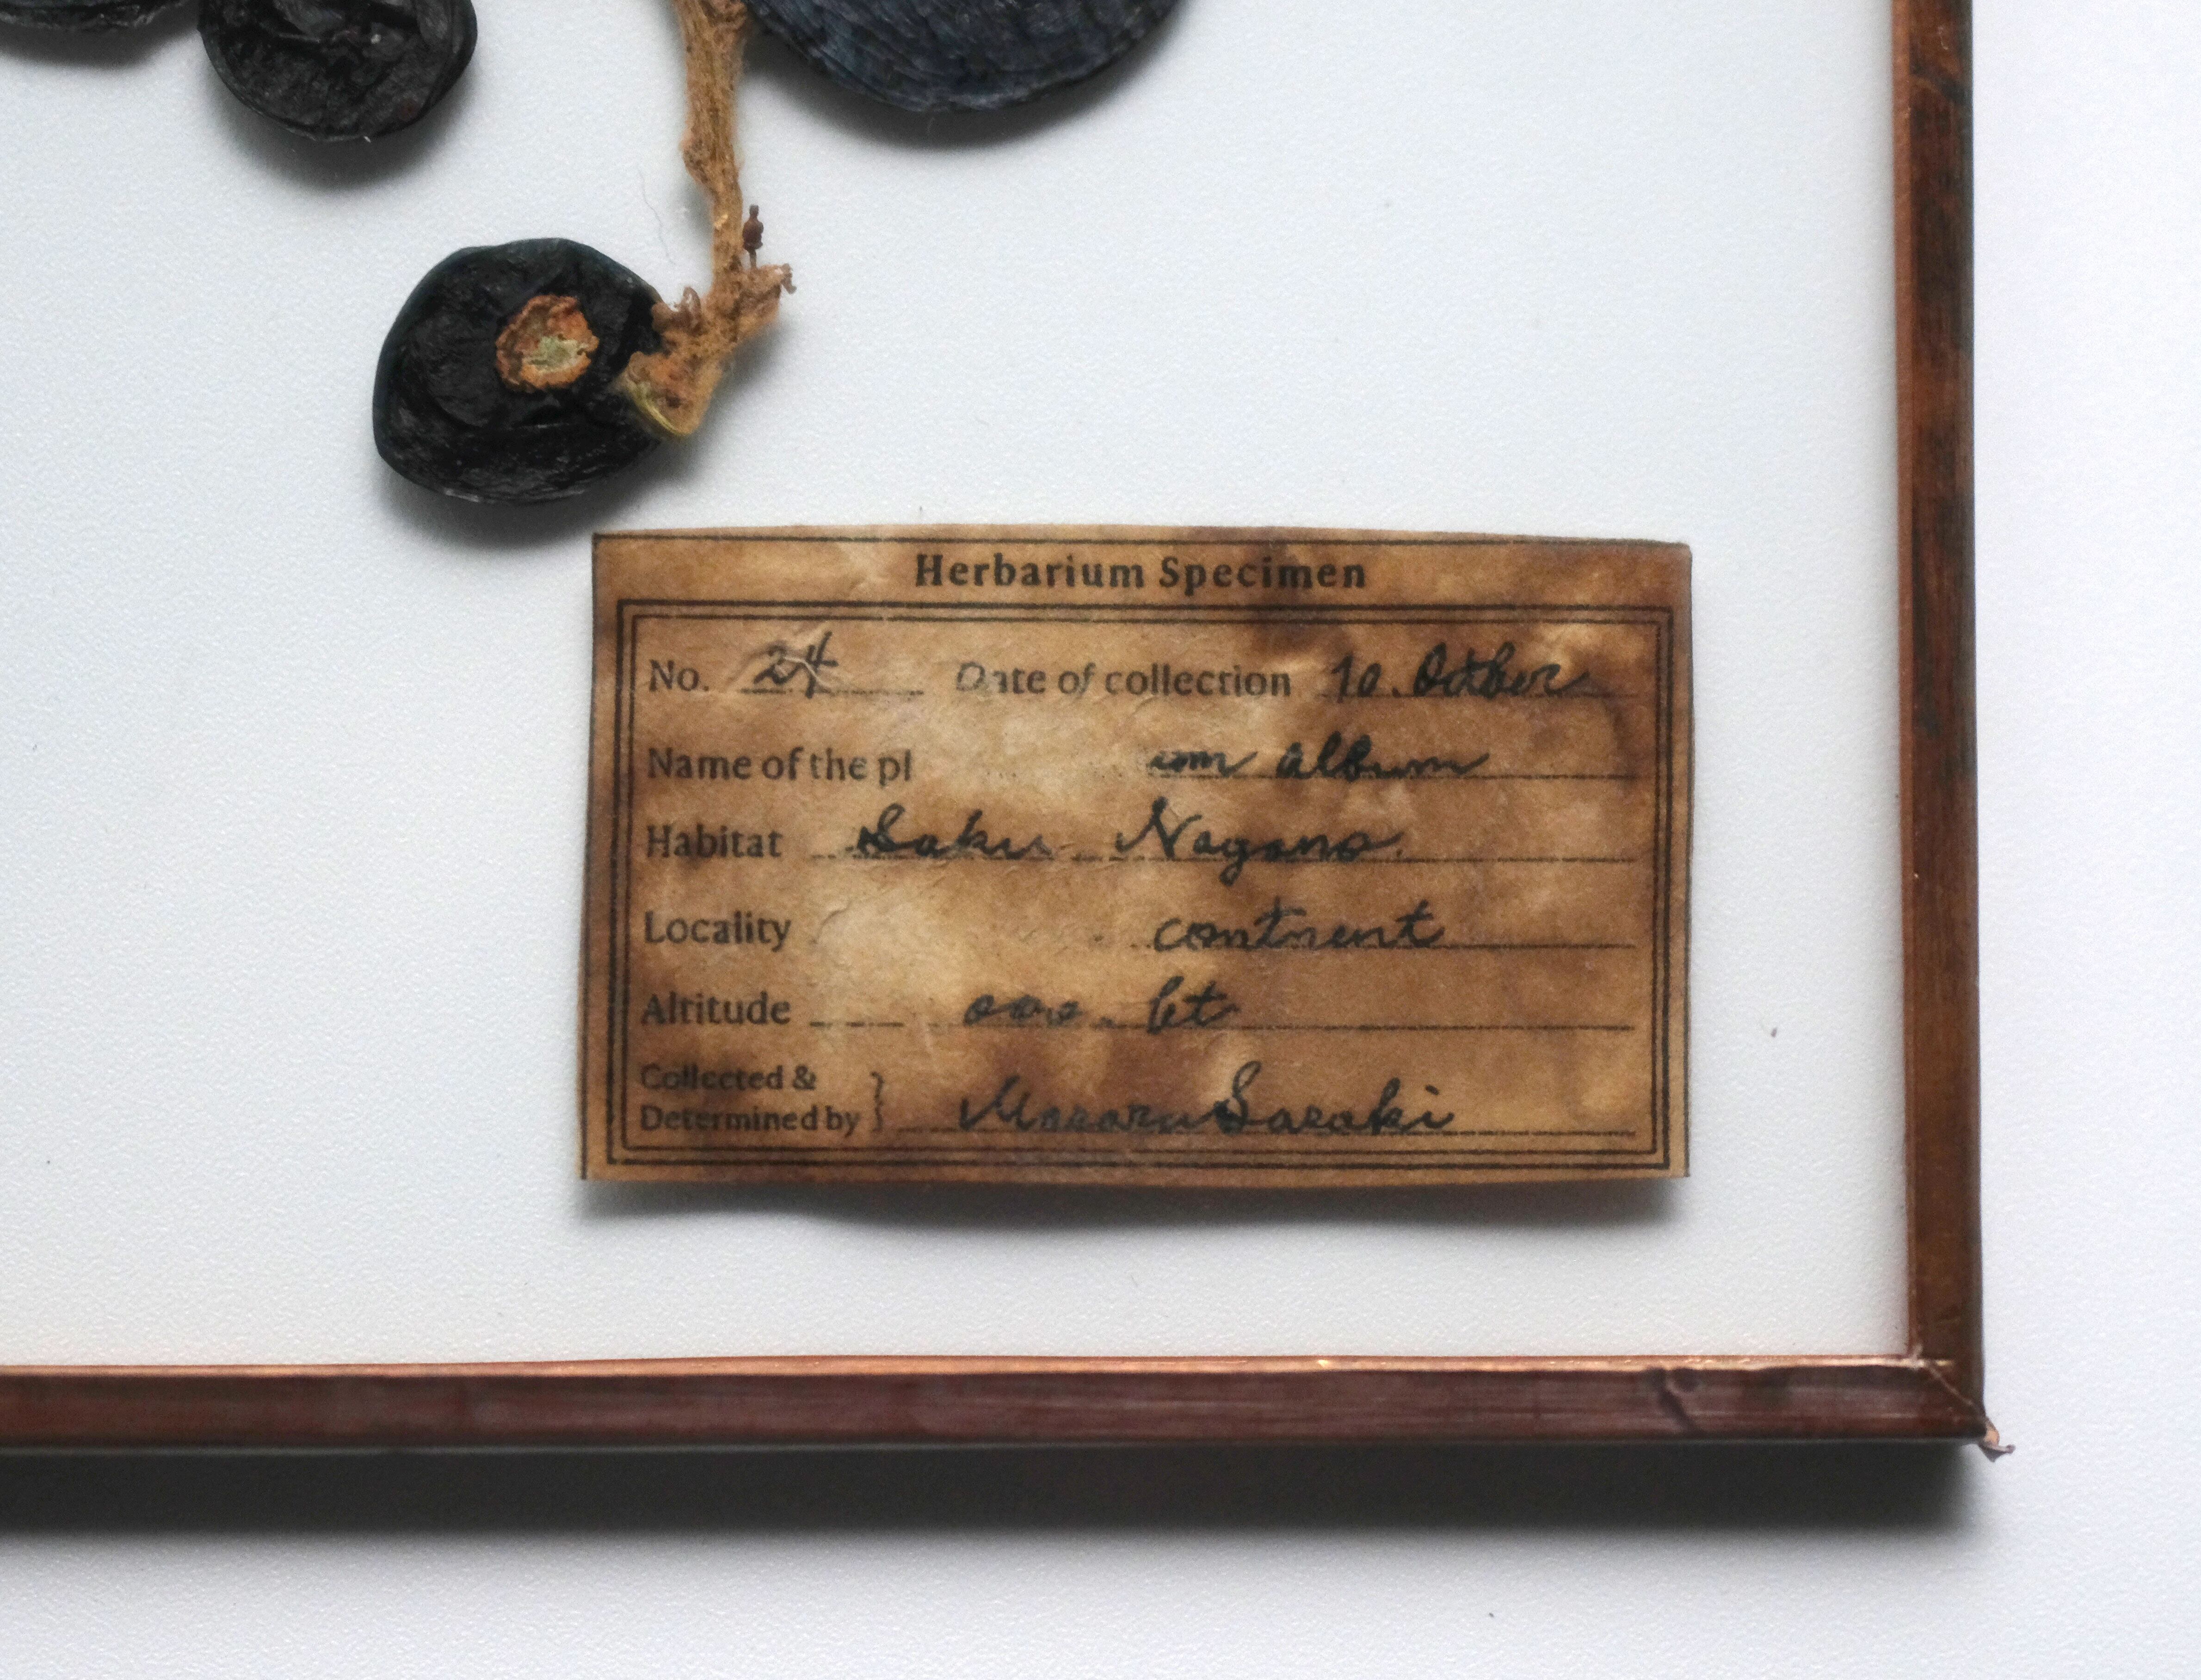 Herbarium Specimen
No. 24 Date of collection 10. October
Name of the pl um album
Habitat Saku Nagano.
Locality continent
Altitude 000 ft
Collected &
Determined by } Masaru Sasaki